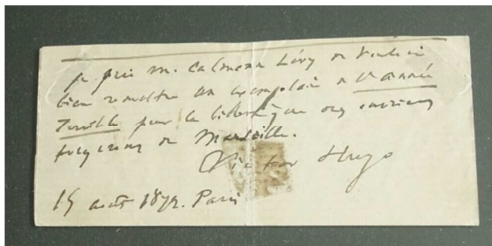 je prie M. Calmann Lévy de vouloir
bien remettre un exemplaire de l'année
Terrible pour la bibliothèque des ouvriers
de Marseille.
Victor Hugo
15 août 1872. Paris